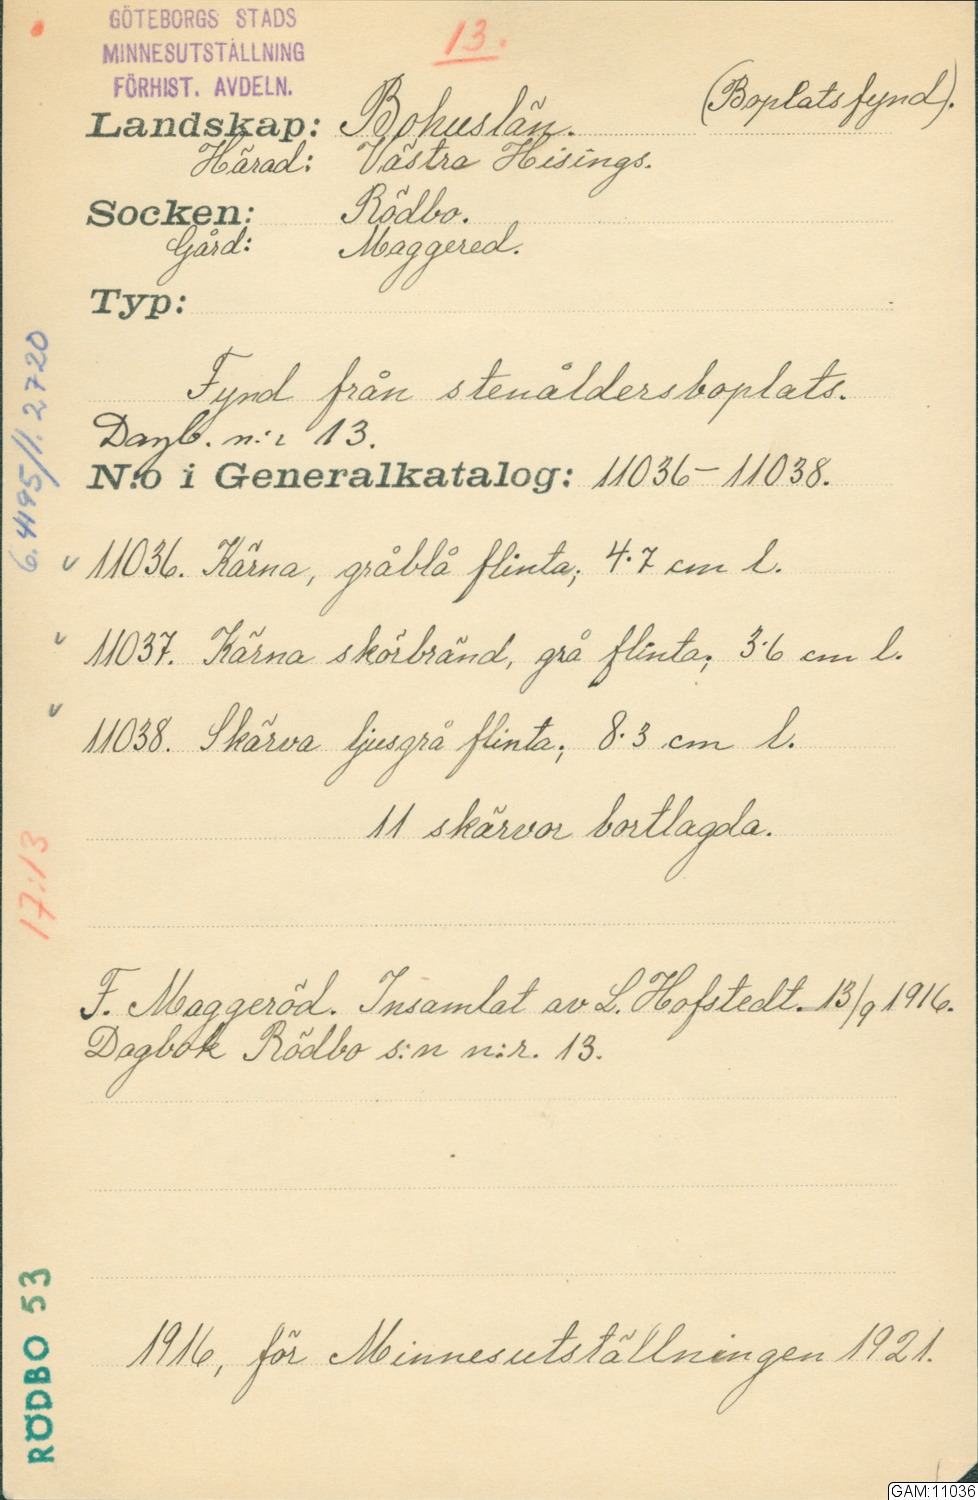 GÖTEBORGS STADS
MINNESUTSTÄLLNING
FÖRHIST. AVDELN.
13.
(Boplatsfynd).
Landskap: Bohuslän.
Härad: Västra Hisings.
Socken: Rödbo.
Gård: Maggered.
Typ:
Fynd från stenåldersboplats.
Dagb. n:r 13.
N:o i Generalkatalog: 11036-11038.
v 11036. Kärna, gråblå flinta; 4.7 cm l.
v 11037. Kärna skörbränd, grå flinta; 3.6 cm l.
v 11038. Skärva ljusgrå flinta; 8.3 cm l.
11 skärvor bortlagda.
F. Maggeröd. Insamlat av L. Hofstedt. 13/9 1916.
Dagbok Rödbo s:n n:r. 13.
1916, för Minnesutställningen 1921.
6.4195/1.2720
17:13
RÖDBO 53
GAM:11036